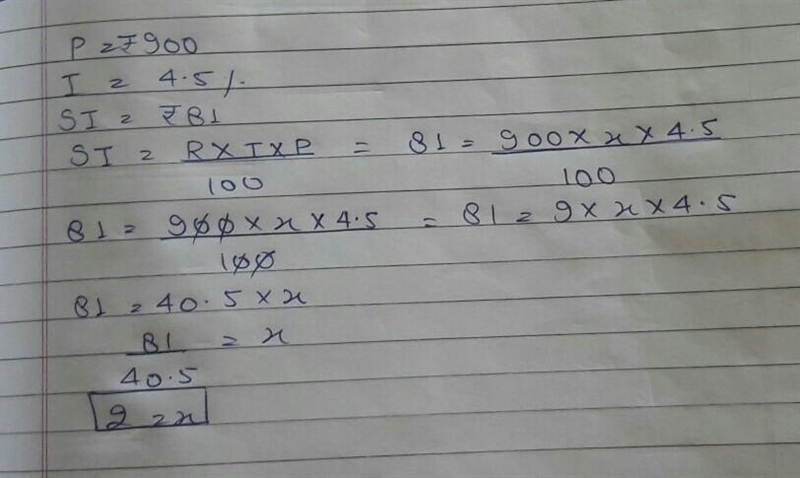 P = ₹900
I = 4.5 %
SI = ₹81
SI = R×I×P/100 = 81 = 900×x×4.5/100
81 = 900×x×4.5/100 = 81 = 9×x×4.5
81 = 40.5×x
81/40.5 = x
2 = x